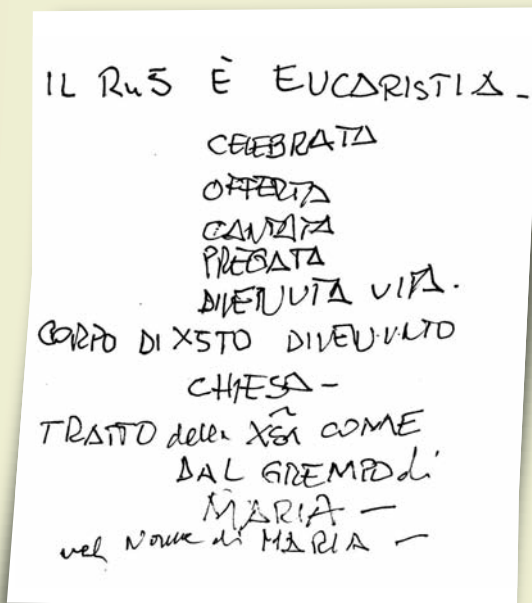 IL RnS È EUCARISTIA -
CELEBRATA
OFFERTA
CANTATA
PREGATA
DIVENUTA VITA.
CORPO DI XSTO DIVENUTO
CHIESA -
TRATTO della COME
DAL GREMBO di
MARIA -
nel Nome di MARIA -